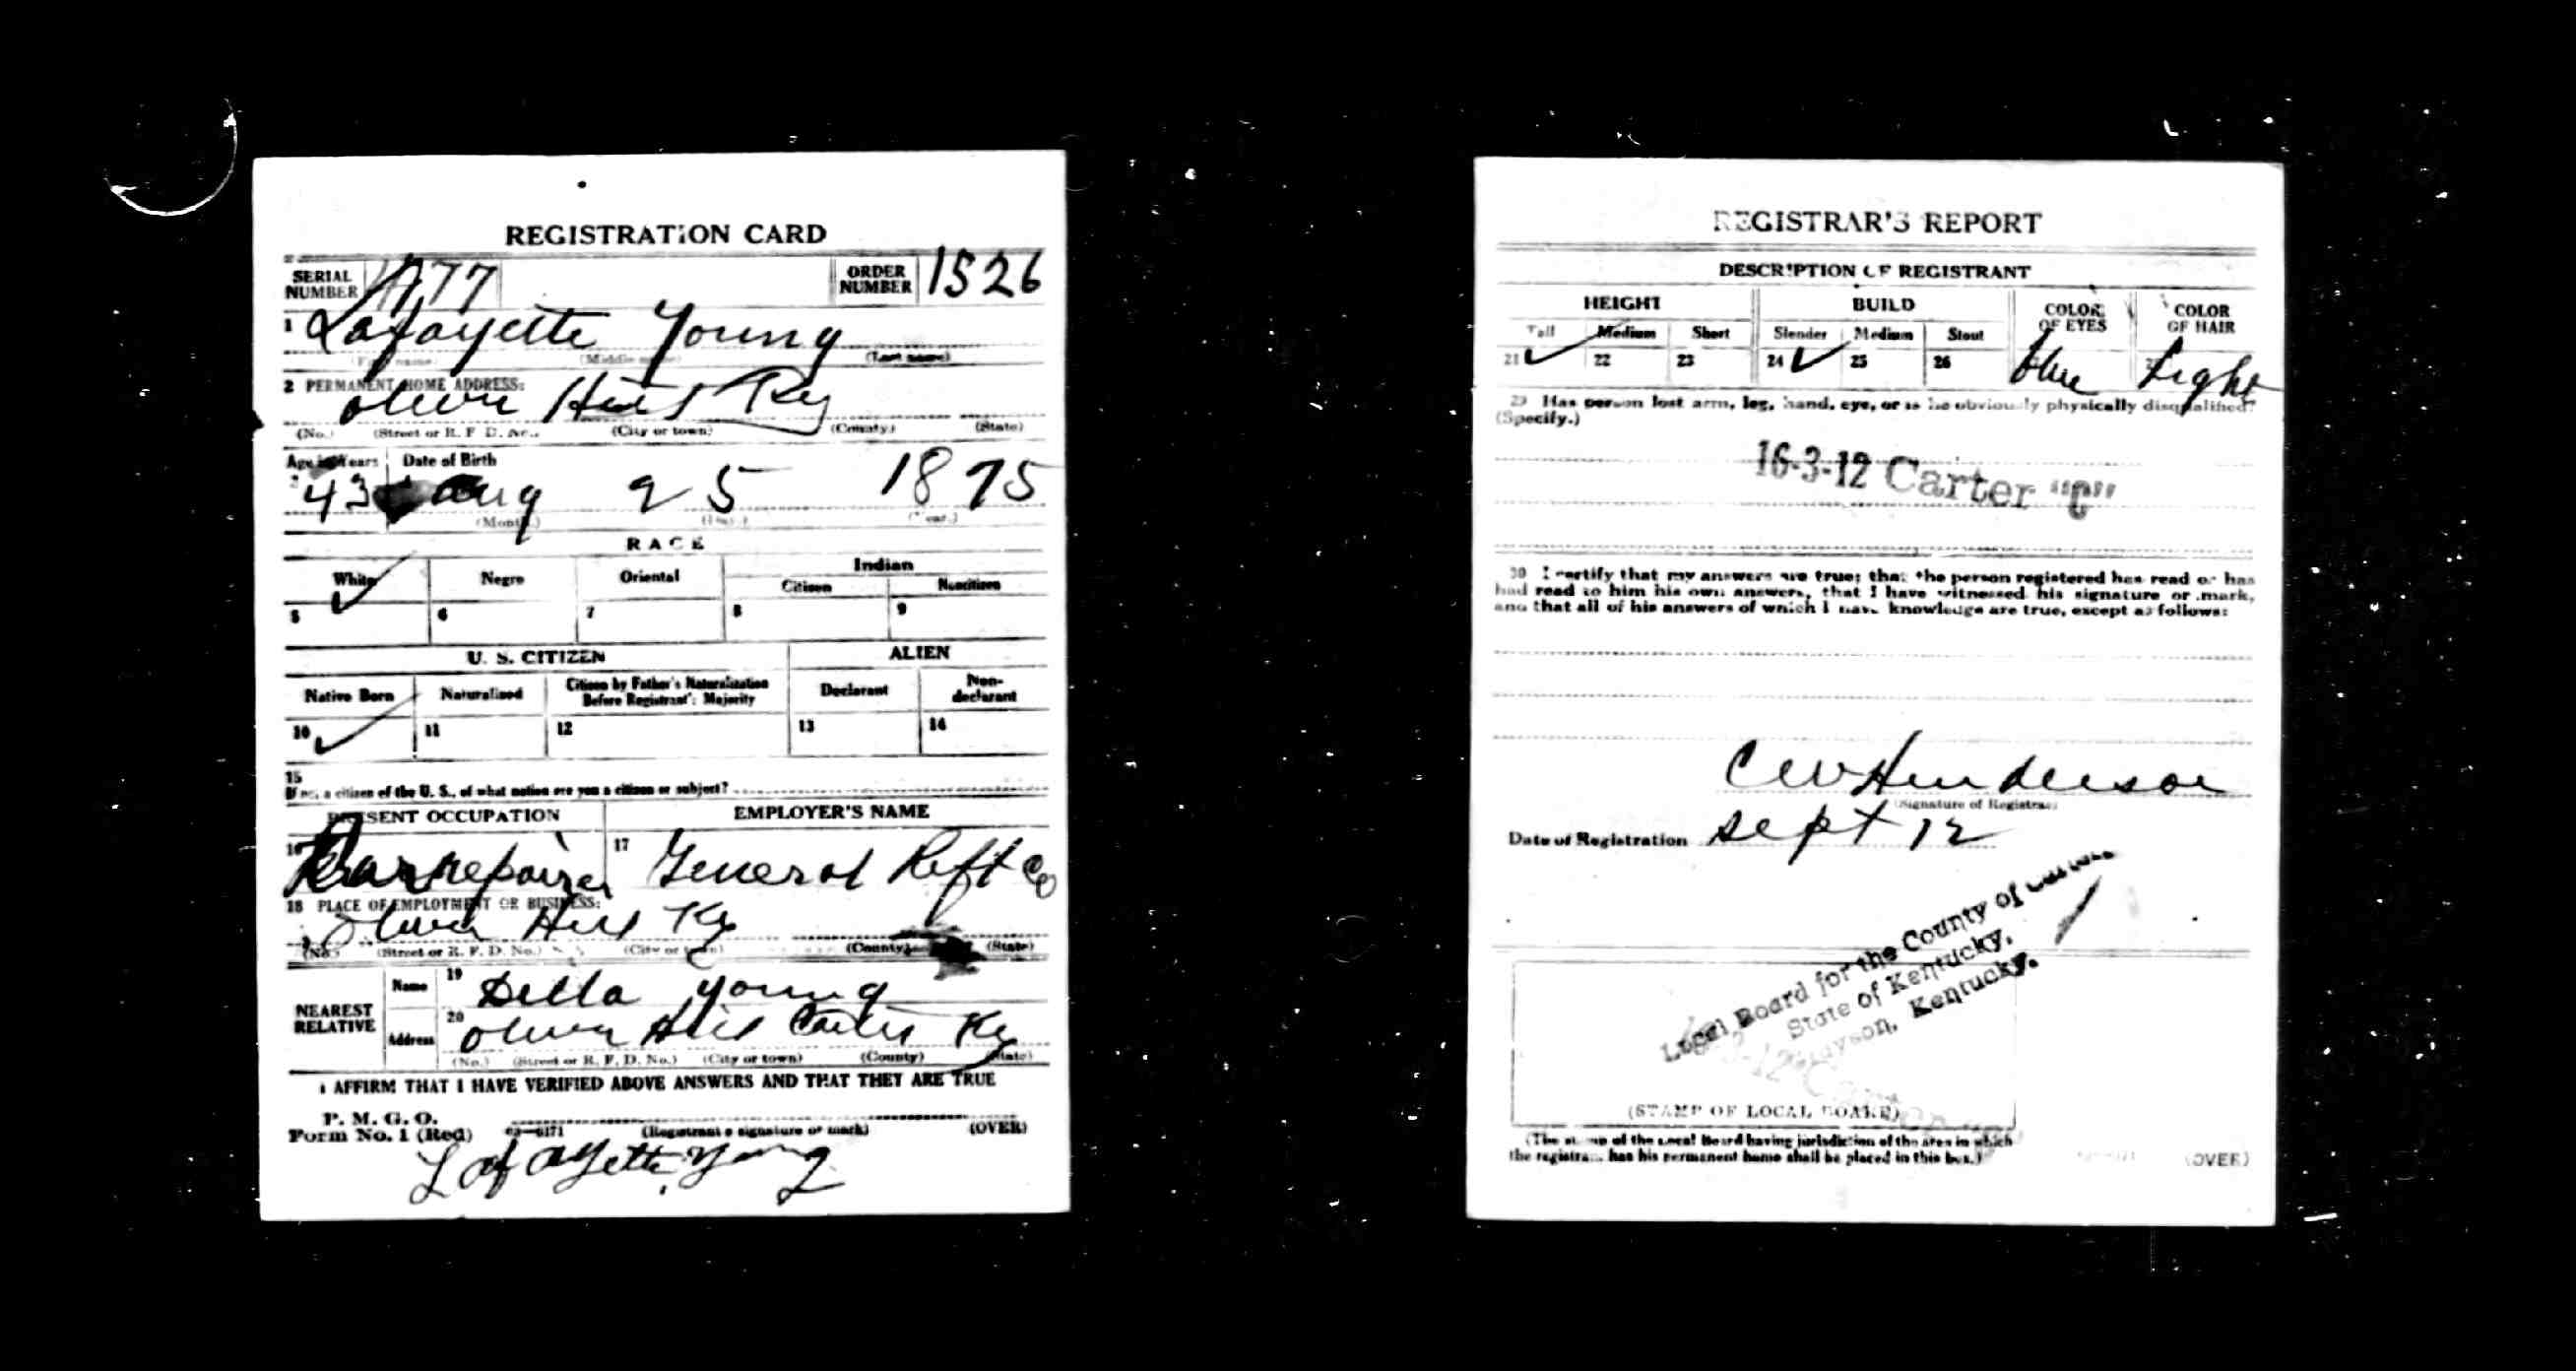 REGISTRATION CARD
SERIAL NUMBER 1777 ORDER NUMBER 1526
1 Lafayette Young
(First name) (Middle name) (Last name)
2 PERMANENT HOME ADDRESS:
Olive Hill Ky
(No.) (Street or R. F. D. No.) (City or town) (County) (State)
Age in Years Date of Birth
43 Aug 25 1875
(Month.) (Day.) (Year.)
RACE
White Negro Oriental Indian
Citizen Noncitizen
5 6 7 8 9
U. S. CITIZEN ALIEN
Native Born Naturalized Citizen by Father's Naturalization Before Registrant's Majority Declarant Non-declarant
10 11 12 13 14
15
If not a citizen of the U. S., of what nation are you a citizen or subject?
PRESENT OCCUPATION EMPLOYER'S NAME
16 Car repairer 17 General Reft Co
18 PLACE OF EMPLOYMENT OR BUSINESS:
Olive Hill Ky
(No.) (Street or R. F. D. No.) (City or town) (County) (State)
NEAREST RELATIVE
Name 19 Della Young
Address 20 Olive Hill Carter Ky
(No.) (Street or R. F. D. No.) (City or town) (County) (State)
I AFFIRM THAT I HAVE VERIFIED ABOVE ANSWERS AND THAT THEY ARE TRUE
P. M. G. O.
Form No. 1 (Red) 03—6171 (Registrant's signature or mark) (OVER)
Lafayette Young
REGISTRAR'S REPORT
DESCRIPTION OF REGISTRANT
HEIGHT BUILD COLOR OF EYES COLOR OF HAIR
Tall Medium Short Slender Medium Stout
21 22 23 24 25 26 blue Light
29 Has person lost arm, leg, hand, eye, or is he obviously physically disqualified?
(Specify.)
16-3-12 Carter "C"
30 I certify that my answers are true; that the person registered has read or has
had read to him his own answers, that I have witnessed his signature or mark,
and that all of his answers of which I have knowledge are true, except as follows:
C W Henderson
(Signature of Registrar)
Date of Registration Sept 12
Local Board for the County of Carter
State of Kentucky,
Grayson, Kentucky.
(STAMP OF LOCAL BOARD)
(The stamp of the Local Board having jurisdiction of the area in which
the registrant has his permanent home shall be placed in this box.)
(OVER)